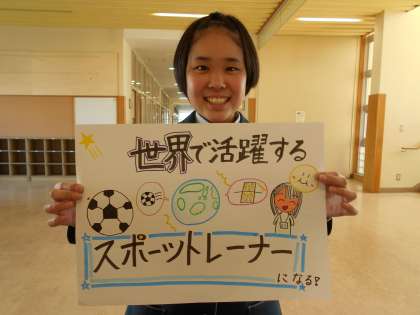 世界で活躍する
スポーツトレーナー
になる!